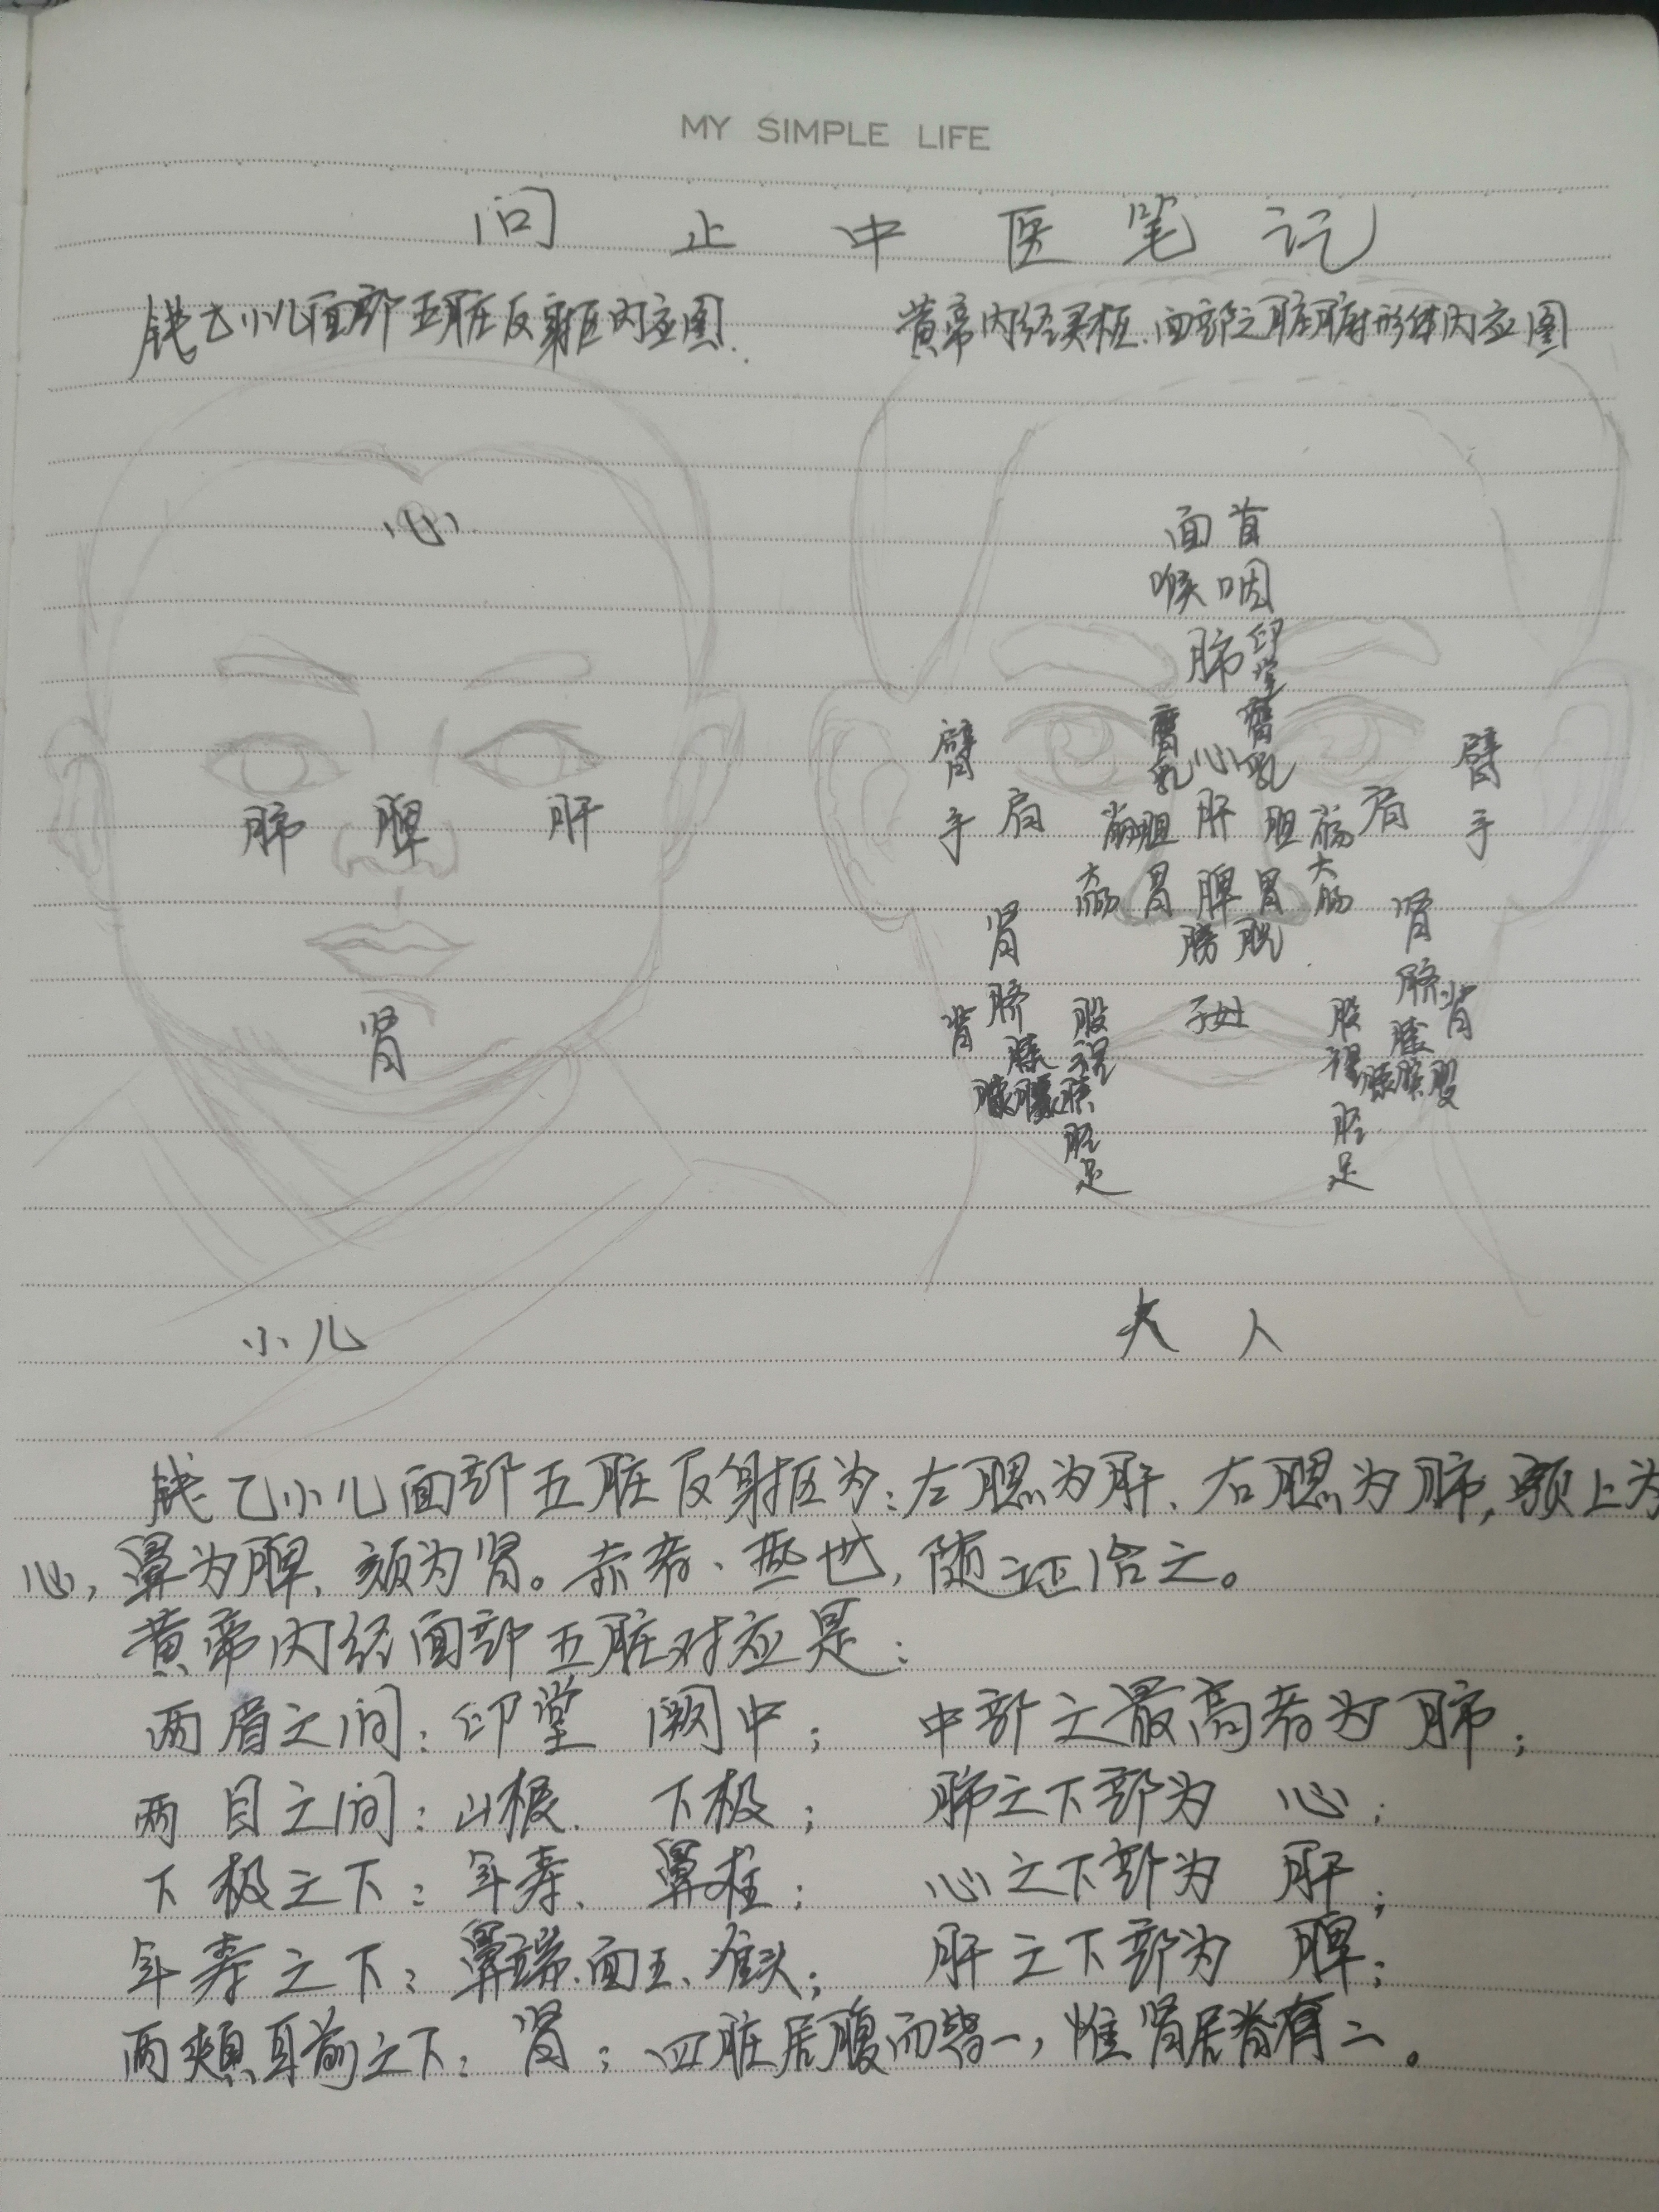 MY SIMPLE LIFE
问止中医笔记
钱乙小儿面部五脏反射区内应图.
黄帝内经灵枢.面部之脏腑形体内应图
心
肺 脾 肝
肾
面首
喉咽
肺 印堂
臂 膺乳 心 膺乳 臂
手 肩 胆 肝 胆 肩 手
大肠 胃 脾 胃 大肠
肾 膀胱 肾
脐 脐
背 股 子处 股 背
膝 膝
胫 胫
足 足
小儿
大人
钱乙小儿面部五脏反射区为:左腮为肝、右腮为肺,额上为
心,鼻为脾、颏为肾。赤者、热也,随证治之。
黄帝内经面部五脏对应是:
两眉之间:印堂 阙中; 中部之最高者为肺;
两目之间:山根、下极; 肺之下部为 心;
下极之下:年寿、鼻柱; 心之下部为 肝;
年寿之下:鼻端、面王、准头; 肝之下部为 脾;
两颊耳前之下:肾;四脏居腹而皆一,惟肾居脊有二。